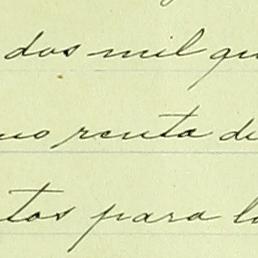 dos mil qu
mo renta de
tos para la